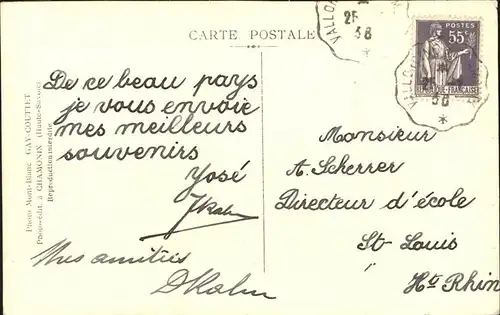 CARTE POSTALE
VALLO
25
38
*
POSTES
55c
RÉPUBLIQUE FRANÇAISE
VALLO
25
38
*
De ce beau pays
je vous envoie
mes meilleurs
souvenirs
José
Mes amitiés
Monsieur
A. Scherrer
Directeur d'école
St-Louis
Ht Rhin
Photo Mont-Blanc GAY-COUTTET
Photo-édit. à CHAMONIX (Haute-Savoie)
Reproduction interdite